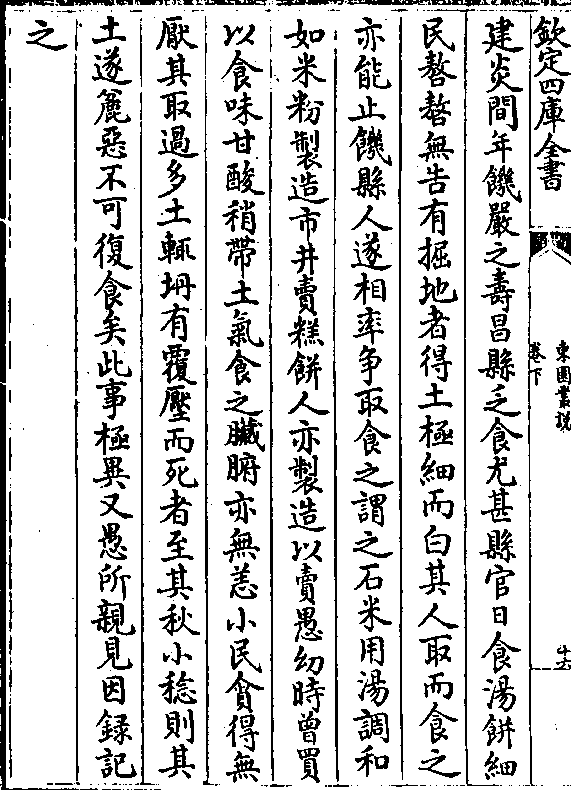 欽定四庫全書
東園叢說
卷下
十六
建炎間年饑嚴之壽昌縣乏食尤甚縣官日食湯餅細
民嗸嗸無告有掘地者得土極細而白其人取而食之
亦能止饑縣人遂相率争取食之謂之石米用湯調和
如米粉製造市井賣糕餅人亦製造以賣愚幼時曾買
以食味甘酸稍帶土氣食之臟腑亦無恙小民貪得無
厭其取過多土輒坍有覆壓而死者至其秋小稔則其
土遂麄惡不可復食矣此事極異又愚所親見因録記
之